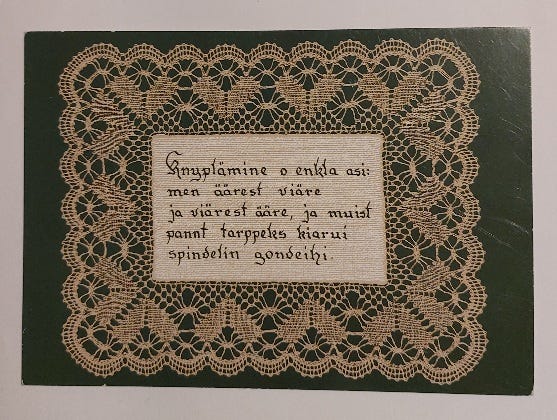 Knyplämine o enkla asi:
men äärest viäre
ja viärest ääre, ja muist
pannt tarppeks kiarui
spindelin gondeihi.